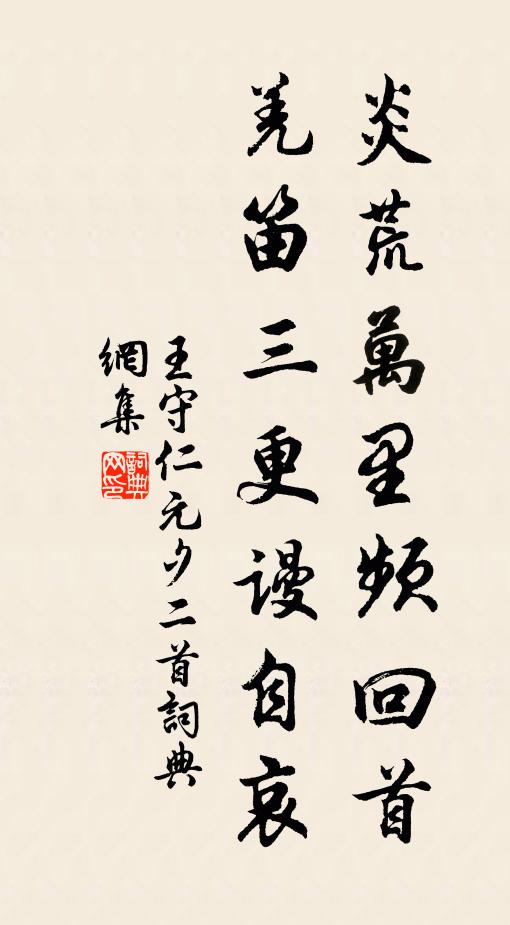 炎荒萬里頻回首
羌笛三更謾自哀
王守仁元夕二首詞典
網集
詞典
网印